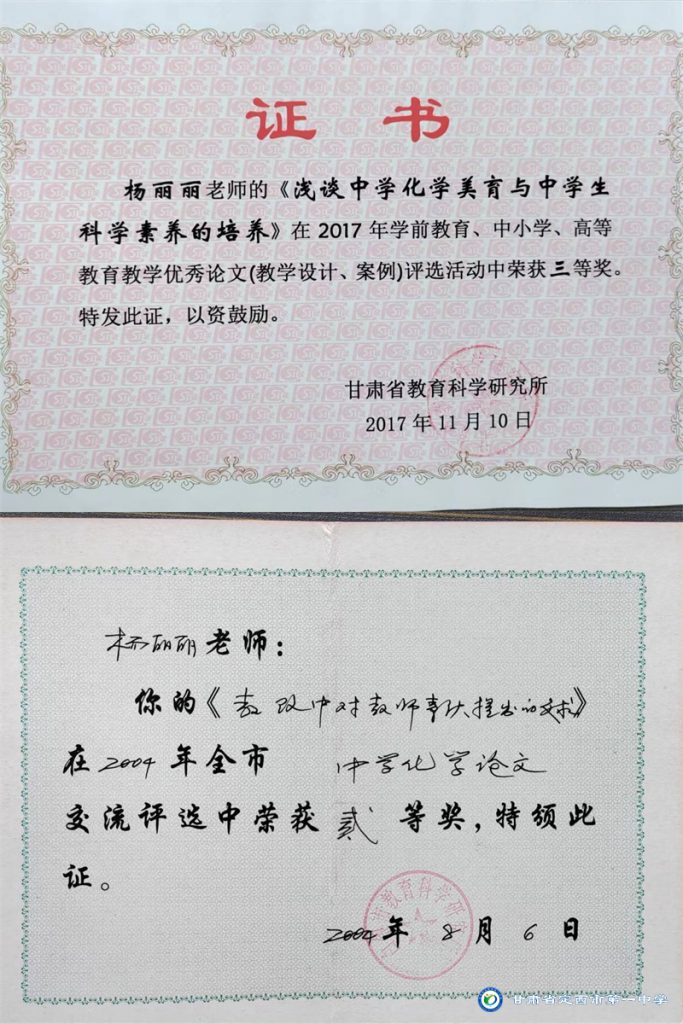 证书
杨丽丽老师的《浅谈中学化学美育与中学生
科学素养的培养》在 2017 年学前教育、中小学、高等
教育教学优秀论文(教学设计、案例)评选活动中荣获三等奖。
特发此证，以资鼓励。
甘肃省教育科学研究所
2017 年 11 月 10 日
杨丽丽老师：
你的《教改中对教师素质提出的要求》
在 2004 年全市 中学化学论文
交流评选中荣获 贰 等奖，特颁此
证。
教育科学研
2004 年 8 月 6 日
甘肃省定西市第一中学